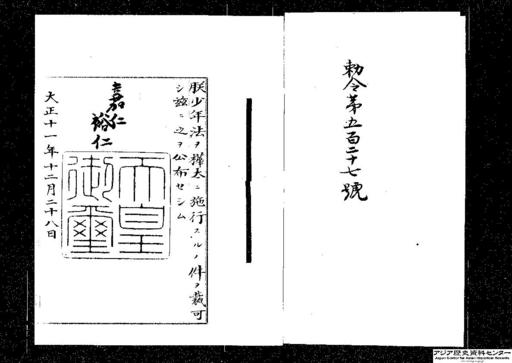 勅令第五百二十七號
朕少年法ヲ樺太ニ施行スルノ件ヲ裁可
シ茲ニ之ヲ公布セシム
嘉仁
裕仁
天皇
御璽
大正十一年十二月二十八日
アジア歴史資料センター
Japan Center for Asian Historical Records